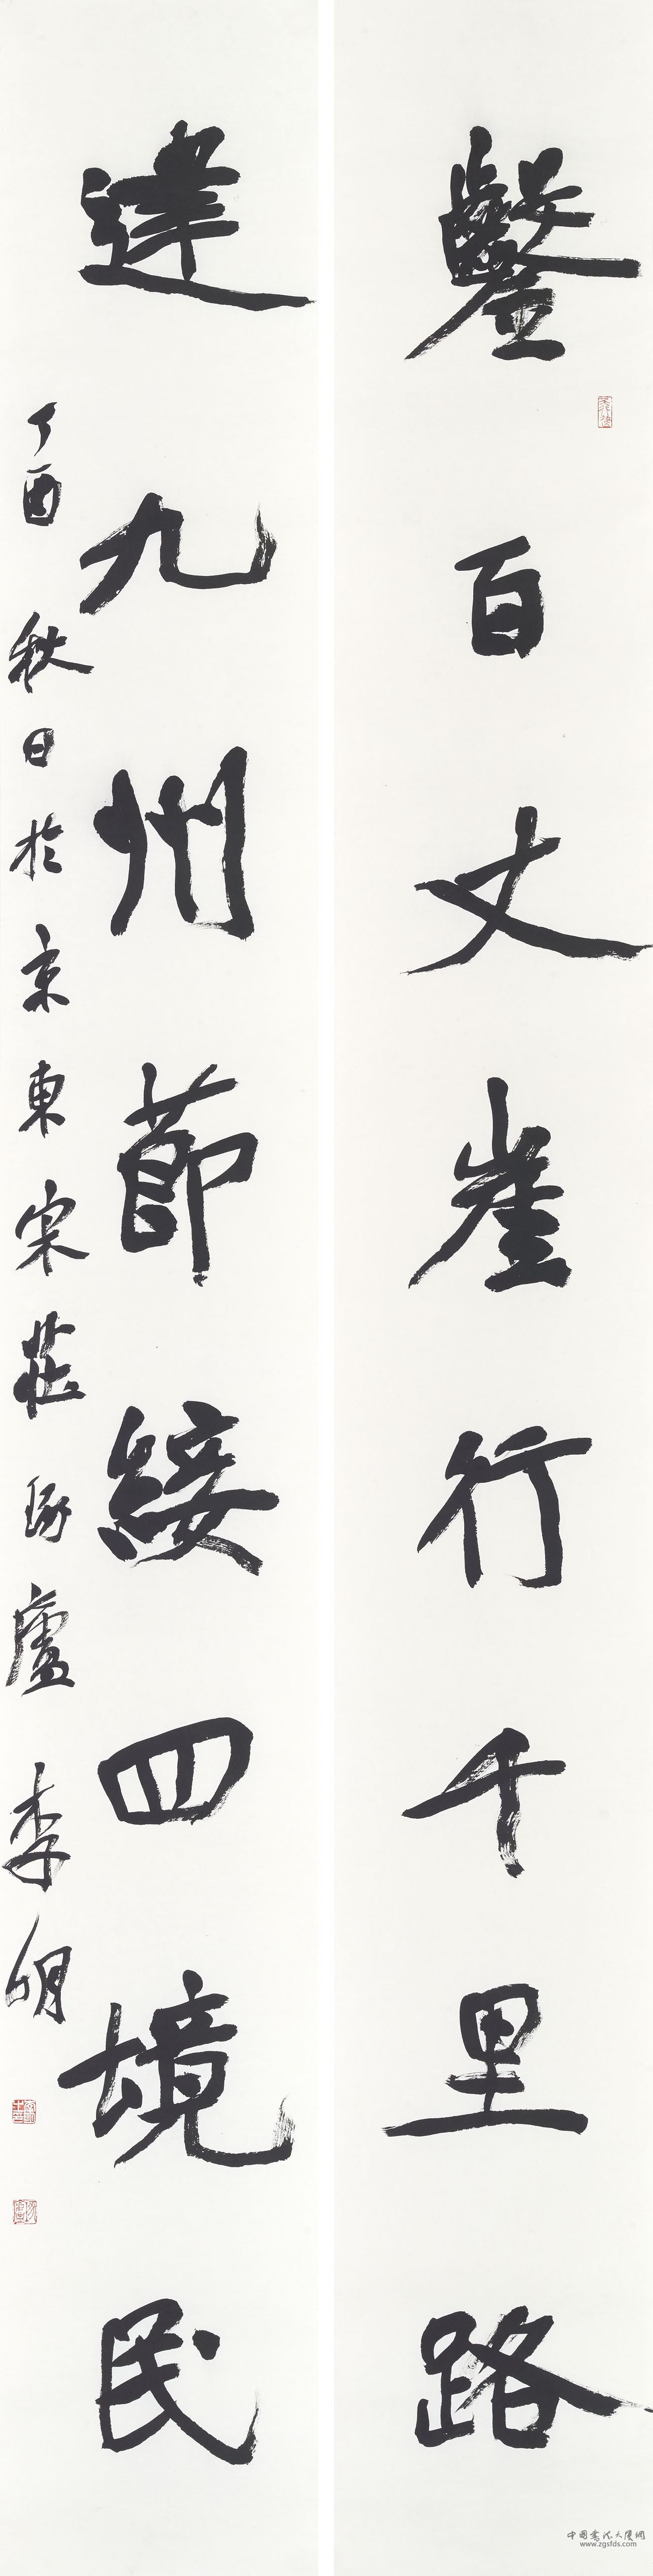 鑿百丈崖行千里路
達九州節綏四境民
丁酉秋日於京東宋莊琢廬李明
中國書法大廈網
www.zgsfds.com